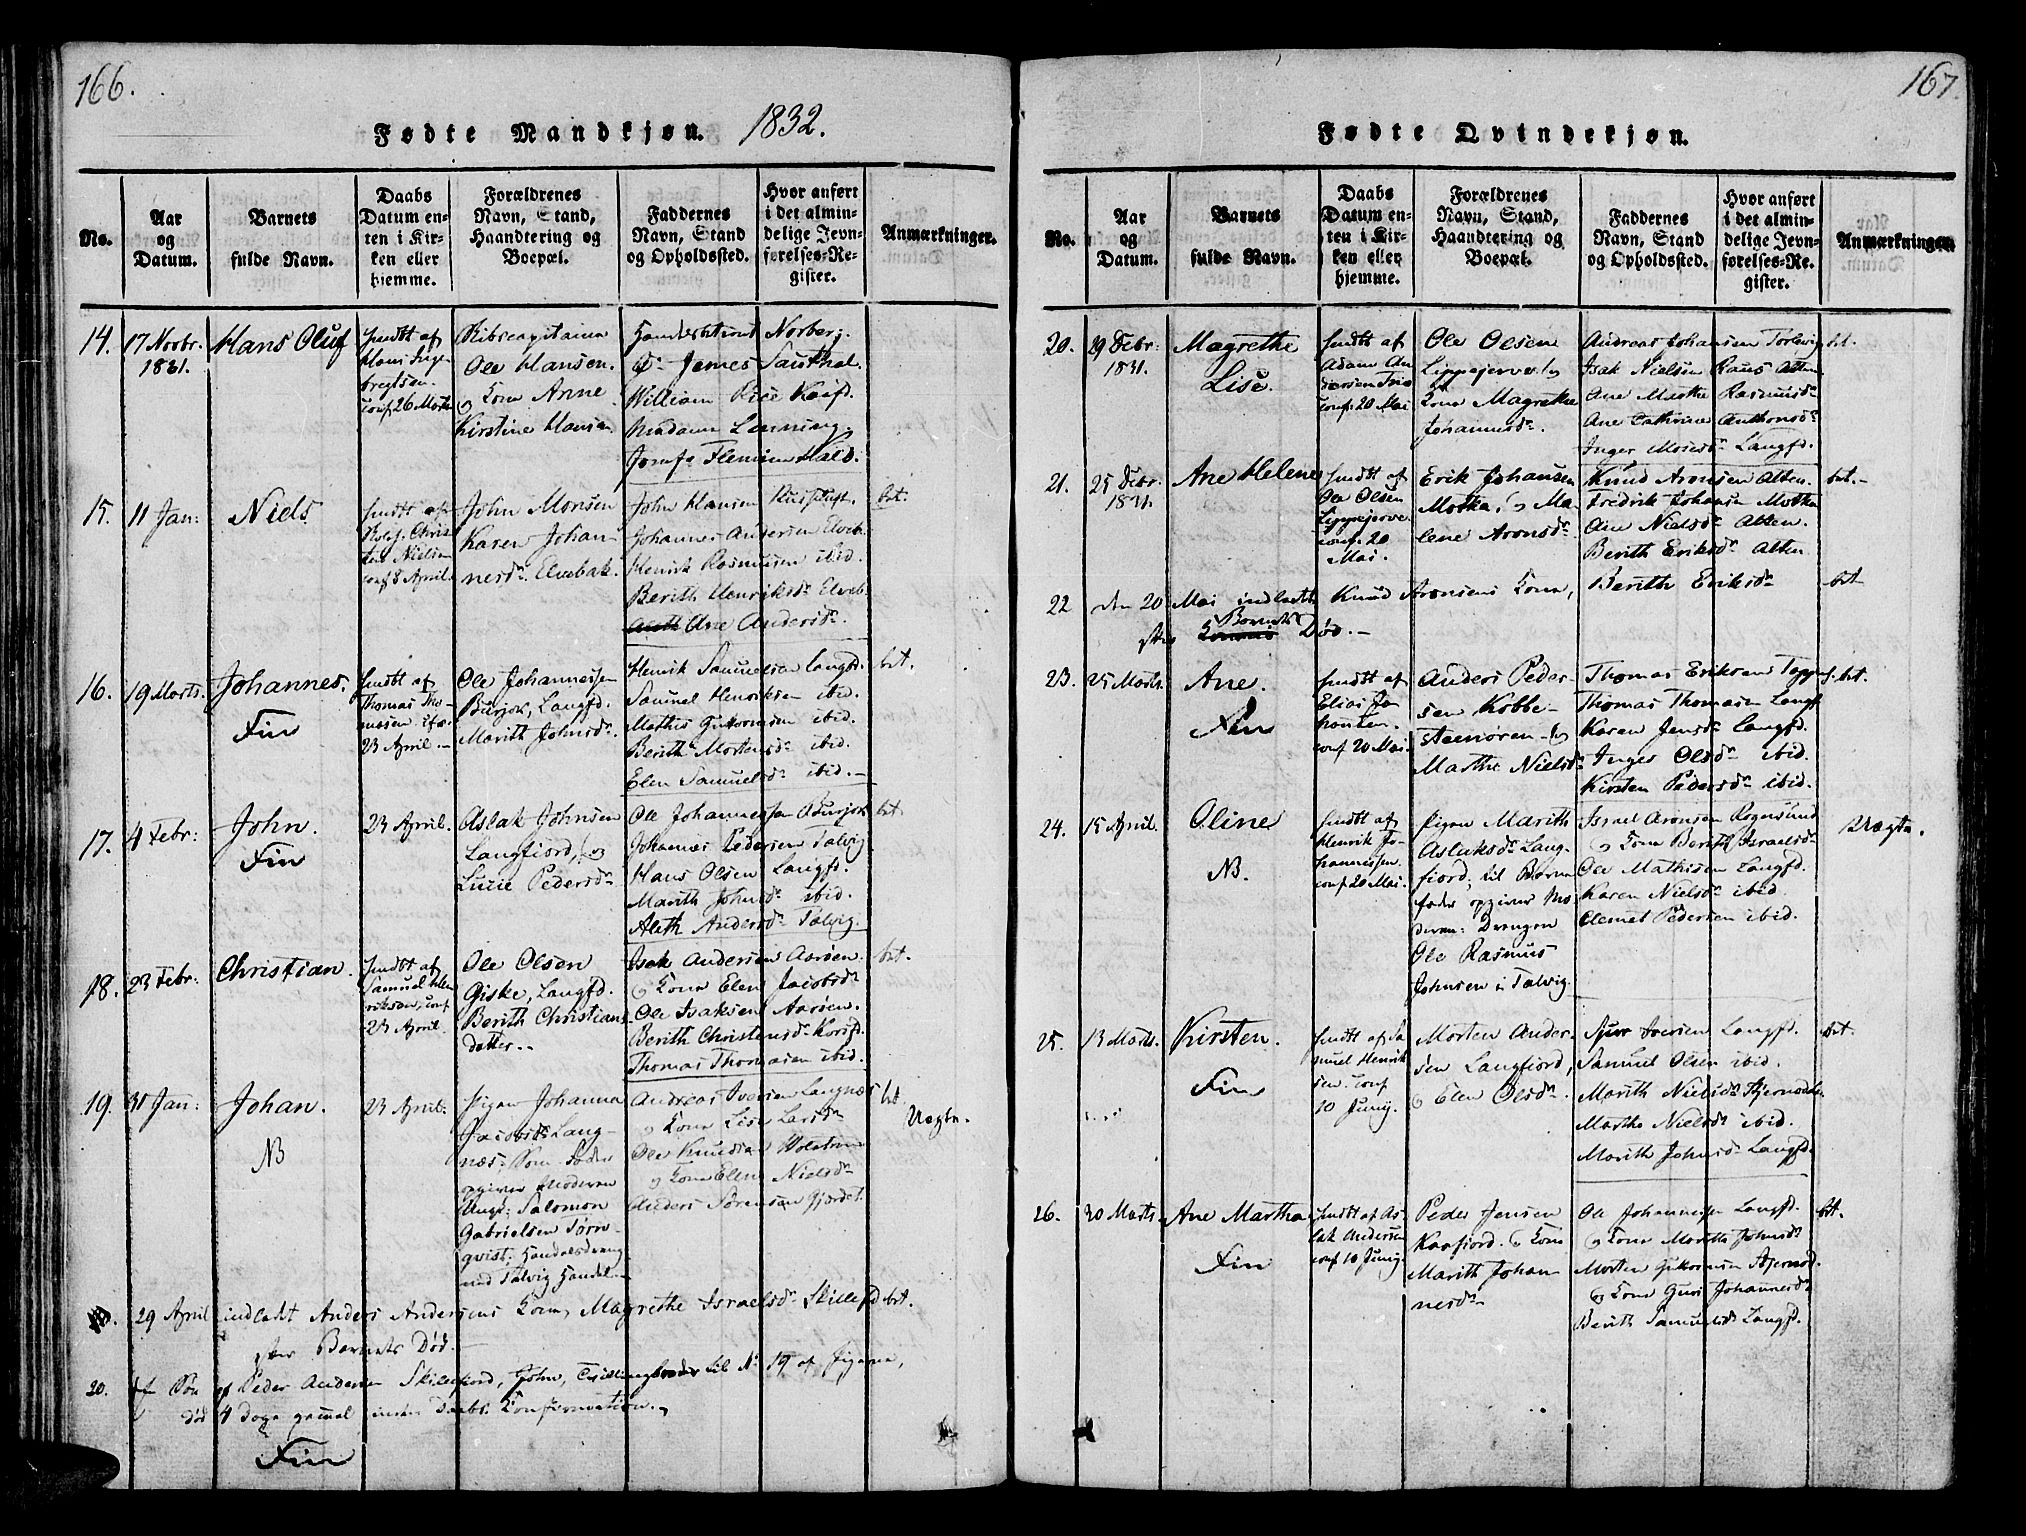 166.
Fødte Mandkjøn. 1832.
No.
Aar og Datum.
Barnets fulde Navn.
Daabs Datum enten i Kirken eller hjemme.
Forældrenes Navn, Stand, Haandtering og Boepæl.
Faddernes Navn, Stand og Opholdssted.
Hvor anført i det almindelige Jevnførelses-Register.
Anmærkninger.
14.
17 Novbr. 1831.
Hans Oluf
hmdt af
conf. 26 Marts
Ole Hansen
Kona Anne
Kirstine Hansen
Norberg.
William Rice
Madame Lenning.
15.
11 Jan:
Niels
hmdt af
conf 8 April.
John Monsen
Karen Johan
nesdr. Elvebak.
John Hansen
Johannes Andersen Elveb.
Henrik Rasmusen ibid.
Berith Henriksdr Elveb.
Ane Andersdr.
bet.
16.
19 Marts.
Johannes.
Fin
hmdt af
Thomas Tho-
masen
23 April.-
Ole Johannessen
Burjok, Langfd.
Marith Johnsdr.
Henrik Samuelsen Langfd.
Samuel Henriksen ibid.
Mathis Gutormsen ibid.
Berith Mortensdr ibid.
Elen Samuelsdr ibid.-
bet.
17.
4 Febr:
John.
Fin
23 April.
Aslak Johnsen
Langfiord, og
Lucie Pedersdr
Ole Johannessen Burjok
Johannes Pedersen Talvig
Hans Olsen Langfd.
Marith Johnsdr ibid
Aleth Andersdr Talvig.
bet.
18.
23 Febr:
Christian.
hmdt af
Samuel Hen
riksen, conf
23 April.
Ole Olsen
Giske, Langfd.
Berith Christians
datter.-
Isak Andersen Aarøen.
og Kona Elen Jacobsdr
Ole Isaksen Aarøen.
Berith Christensdr Korsfd.
Thomas Thomasen ibid.
bet.
19.
31 Jan:
Johan.
NB
23 April.
Pigen Johanna
Jacobsdr Lang-
næs. Som Fader
opgiver Moderen
Ungk. Salomon
Gabrielsen Törn-
qvist. Handelsdreng
ved Talvig Handel.-
Andreas Iversen Langnæs
og Kona Lise Larsdr
Ole Knudsen Holstrøm
og Kona Elen Nielsdr
Anders Sørensen Gjerdet.
bet.
Uægte.
29 April indledt Anders Andersens Kone, Magrethe Israelsdr. Skillefd bet.
efter Barnets Død.
20.
Søn af Peder Andersen Skillefiord, John, Tvillingbroder til No 19 af Pigerne,
død 4 Dage gamel inden Daabs Confirmation.
Fin
167
Fødte Qvindekjøn.
No.
Aar og Datum.
Barnets fulde Navn.
Daabs Datum enten i Kirken eller hjemme.
Forældrenes Navn, Stand, Haandtering og Boepæl.
Faddernes Navn, Stand og Opholdssted.
Hvor anført i det almindelige Jevnførelses-Register.
Anmærkninger.
20.
29 Debr: 1831.
Magrethe
Lise.
hmdt af
Adam An
dersen
conf. 20 Mai
Ole Olsen
Lippejerve. og
Kona Magrethe
Johannesdr.
Andreas Johansen Torevig
Isak Nielsen Raus Alten
Ane Marthe Rasmusdr
Ane Cathrine Anthonsdr.
Inger Monsdr. Langfd.
bet.
21.
25 Debr. 1831.
Ane Helene
hmdt af
Ole Olsen
Lippejerve
conf. 20
Mai.
Erik Johansen
Motka. og Ma-
lene Aronsdr.
Knud Aronsen Alten.
Fredrik Johansen Motka
Ane Nielsdr Alten.
Berith Eriksdr Alten
bet.-
22
den 20 Mai indledt Knud Aronsens Kona, Berith Eriksdr
bet
efter Barnets Død.-
23.
25 Marts.
Ane.
Fin
hmdt af
Elias Jo
hansen.
conf. 20 Mai.
Anders Peder-
sen Kobbe-
steenøren - og
Marthe Nielsdr
Thomas Eriksen
Thomas Thomasen Langf
Karen Jensdr Langfd.
Inger Olsdr ibid.
Kirsten Pedersdr ibid.
bet.
24.
15 April.
Oline
NB.
hmdt af
Henrik Jo-
hannessen.
conf. 20 Mai.
Pigen Marith
Aslaksdr Lang-
fiord; til Barne
fader opgiver Mo
deren: Drengen
Ole Rasmus
Johnsen i Talvig.
Israel Aronsen Rognsund
og Kona Berith Israelsdr
Ole Mathisen Langfd.
Karen Nielsdr ibid.
Clemet Pedersen ibid.
Uægte.
25.
13 Marts.
Kirsten.
Fin
hmdt af Sa
muel Henrik
sen. conf
10 Junij.
Morten Ander-
sen Langfiord,
og Elen Olsdr.
Sjur Iversen Langfd.
Samuel Olsen ibid.
Marith Nielsdr Stjernødn
Marthe Nielsdr ibid.
Marith Johnsdr Langfd.
bet.
26.
20 Marts.
Ane Martha
Fin
hmdt af As-
lak Andersen
conf 10 Junij.
Peder Jensen
Kaafiord. og Kona
Marith Johan
nesdr
Ole Johannessen Langfd.
og Kona Marith Johnsdr
Morten Gutormsen Stjernød.
og Kona Guri Johannesdr
Berith Samuelsdr Langfd.
bet.